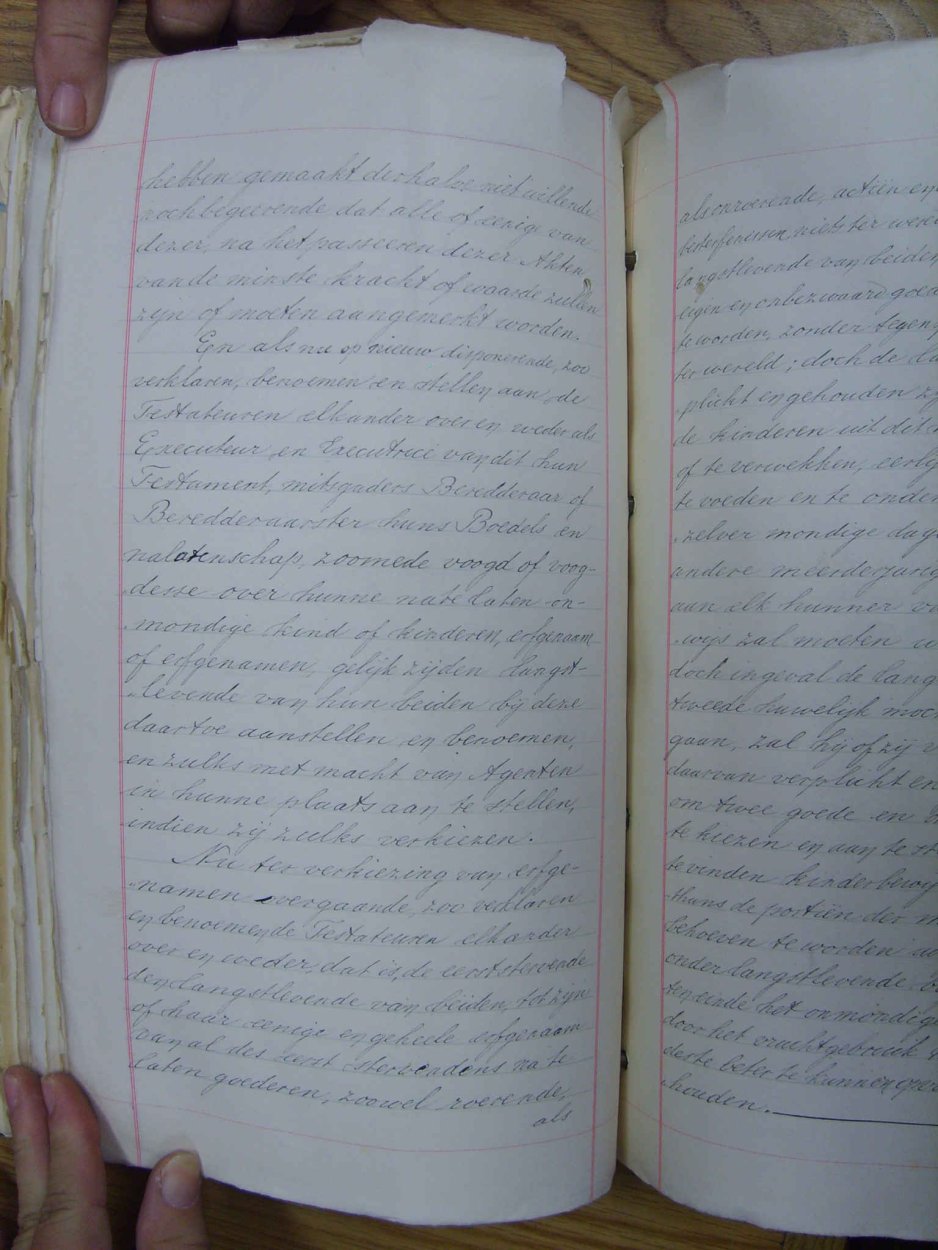 hebben gemaakt derhalve niet willende
noch begeerende dat alle of eenige van
dezer, na het passeeren dezer Akten
van de minste kracht of waarde zullen
zijn of moeten aangemerkt worden.
En als nu op nieuw disponerende, zoo
verklaren, benoemen en stellen aan de
Testateuren elkander over en weder als
Executeur en Executrice van dit hun
Testament, mitsgaders Beredderaar of
Beredderaarster huns Boedels en
nalatenschap, zoomede voogd of voog-
desse over hunne nate laten on-
mondige kind of kinderen, erfgenaam
of erfgenamen, gelijk zij den langst-
levende van hun beiden bij deze
daartoe aanstellen en benoemen,
en zulks met macht van Agenten
in hunne plaats aan te stellen,
indien zij zulks verkiezen.
Nu ter verkiezing van erfge-
namen overgaande, zoo verklaren
en benoemen de Testateuren elkander
over en weder, dat is, de eerststervende
den langstlevende van beiden, tot zijn
of haar eenige en geheele erfgenaam
van al des eerst stervendens na te
laten goederen, zoowel roerende,
als
als onroerende, actiën en
besterfenissen, niets ter were
langstlevende van beiden
eigen en onbezwaard goed
te worden, zonder tegen
ter wereld; doch de
plicht en gehouden
de kinderen uit dit
of te verwekken, eerlij
te voeden en te onder
zelver mondige dag
andere meerderjarig
aan elk hunner
wijs zal moeten
doch ingeval de lang
tweede huwelijk moc
gaan, zal hij of zij
daarvan verplicht en
om twee goede en
te kiezen en aan te st
te vinden kinderbewij
thans de portiën der m
behoeven te worden
onder langstlevende
ten einde het onmondige
door het vruchtgebruik
deste beter te kunnen
houden.